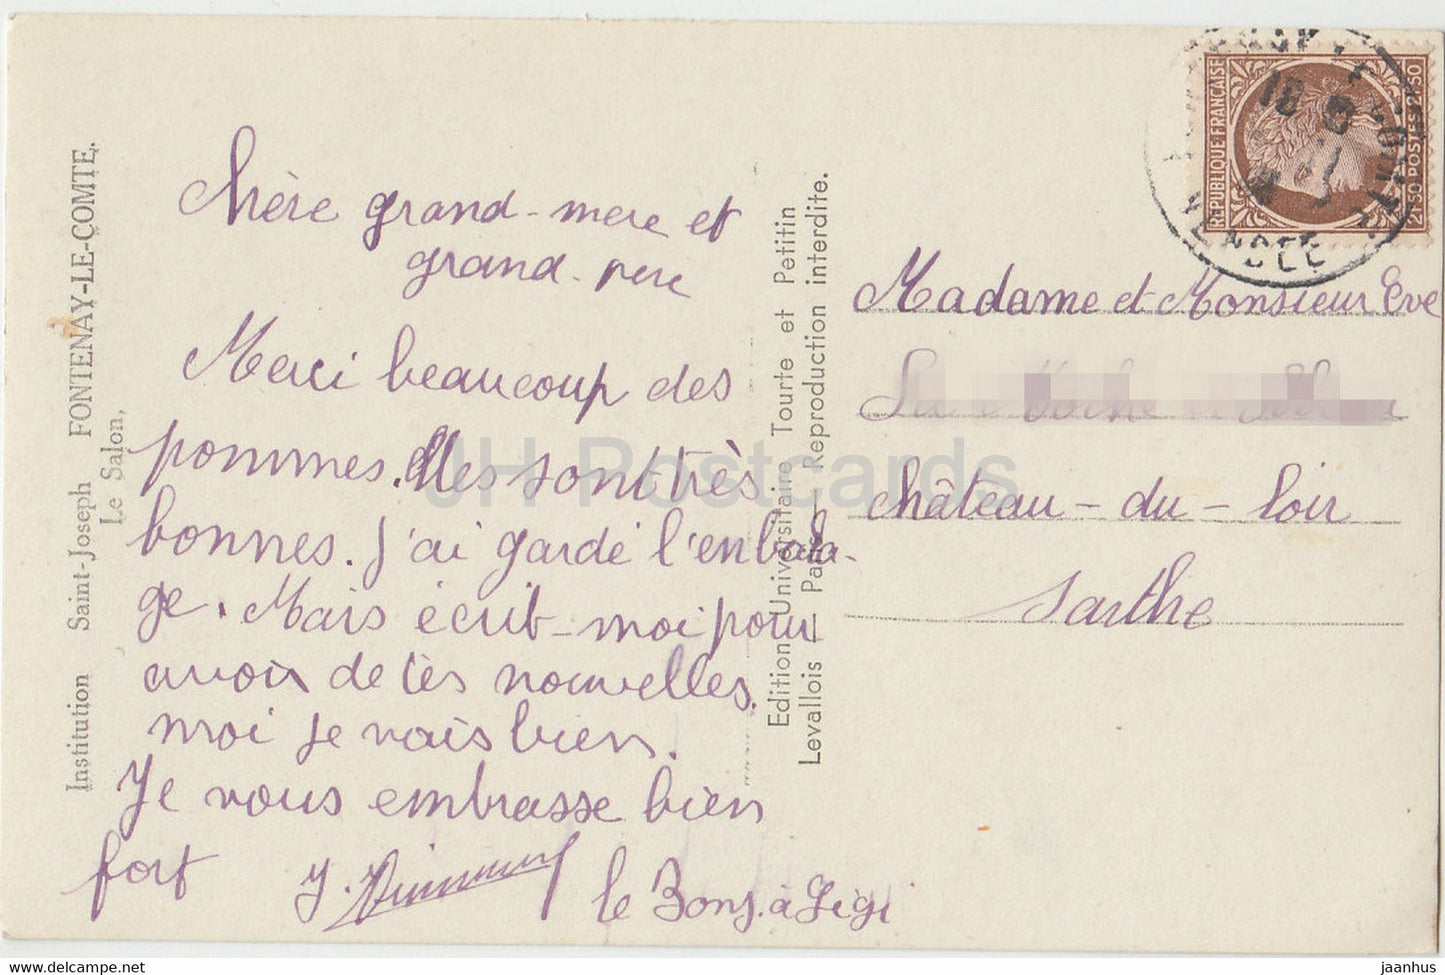 Institution Saint-Joseph FONTENAY-LE-COMTE.
Le Salon.
Chère grand-mere et
grand-pere
Merci beaucoup des
pommes. elles sont très
bonnes. J'ai garde l'enbala-
ge. Mais écrit-moi pour
avoir de tes nouvelles.
moi je vais bien.
Je vous embrasse bien
fort
le Bonj. à Gigi
Edition Universitaire Tourte et Petitin
Levallois — Paris Reproduction interdite.
REPUBLIQUE FRANÇAISE
2F50 POSTES 2F50
18
VENDEE
Madame et Monsieur Eve
château-du-Loir
Sarthe
JH Postcards
jaanhus.com